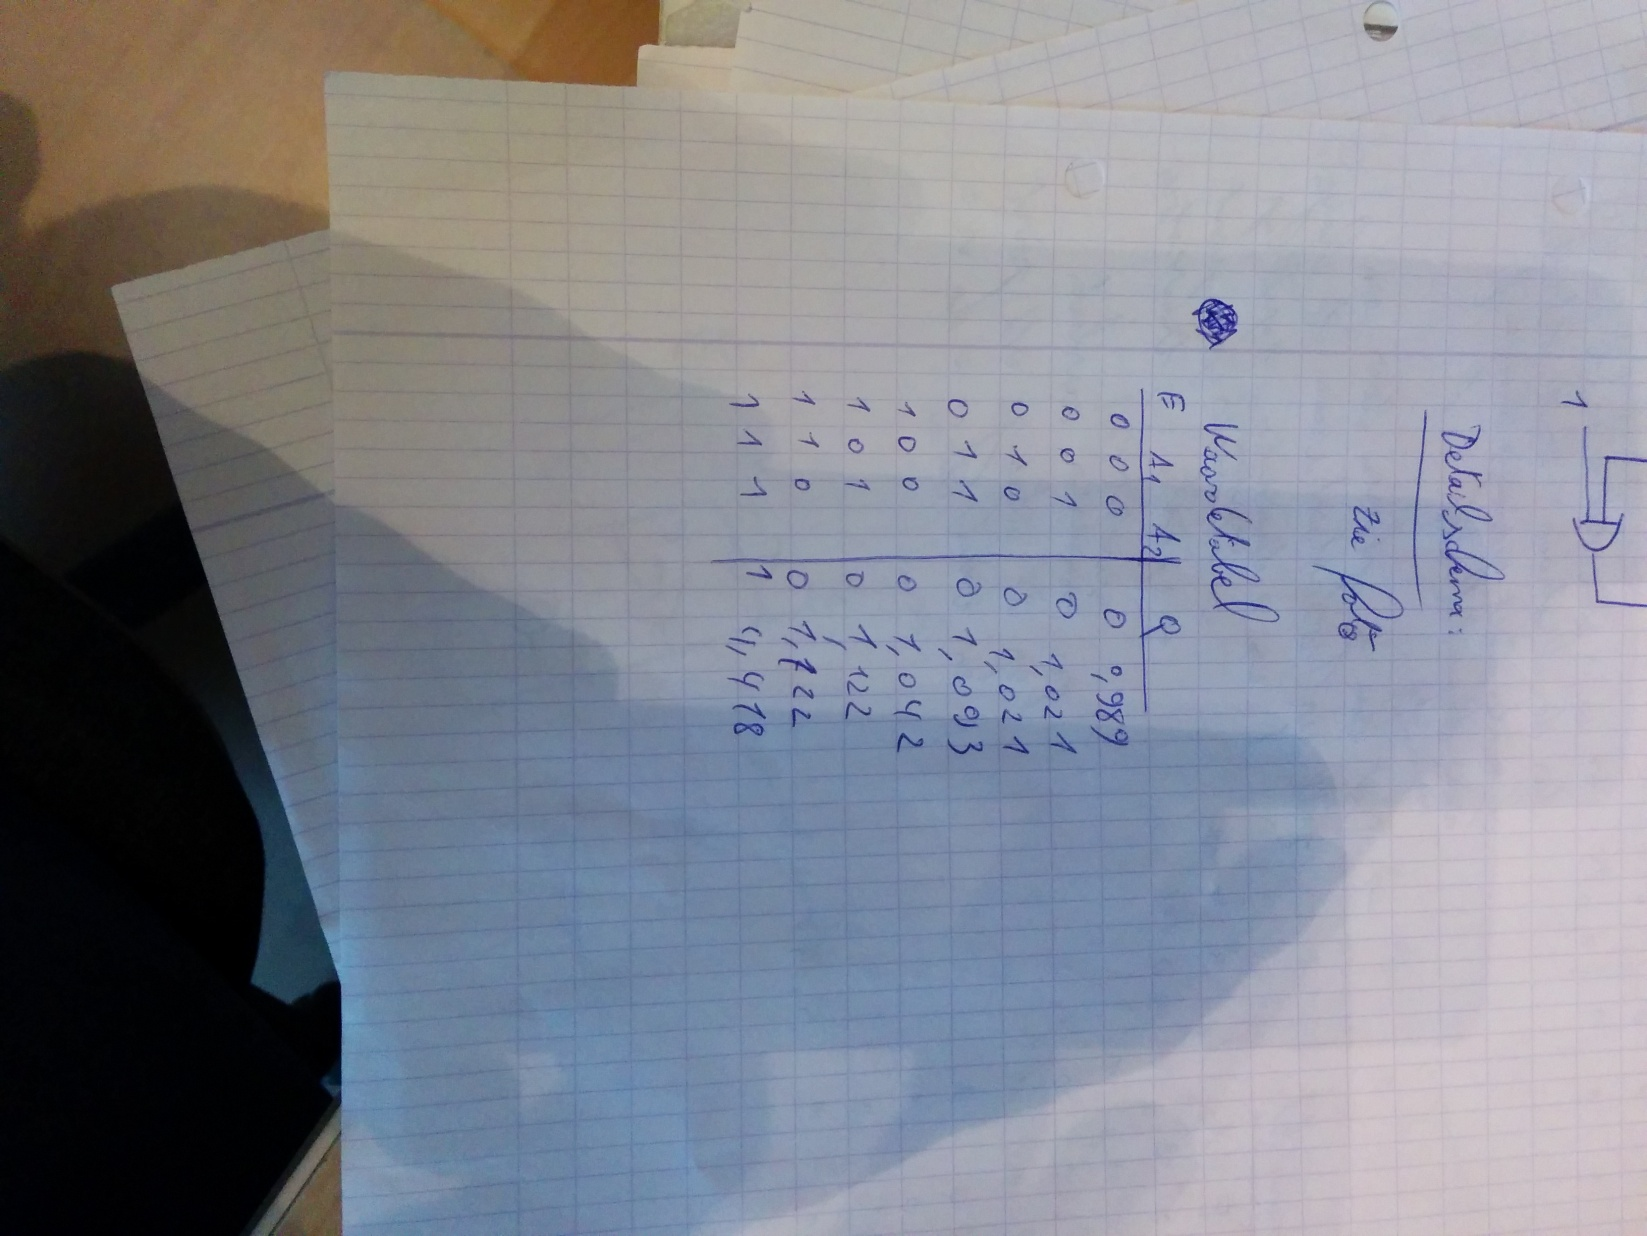 1
Detailschema:
zie foto
Waartabel
E A1 A2 Q
0 0 0 0 0,989
0 0 1 0 1,021
0 1 0 0 1,021
0 1 1 0 1,093
1 0 0 0 1,042
1 0 1 0 1,122
1 1 0 0 1,122
1 1 1 1 4,418